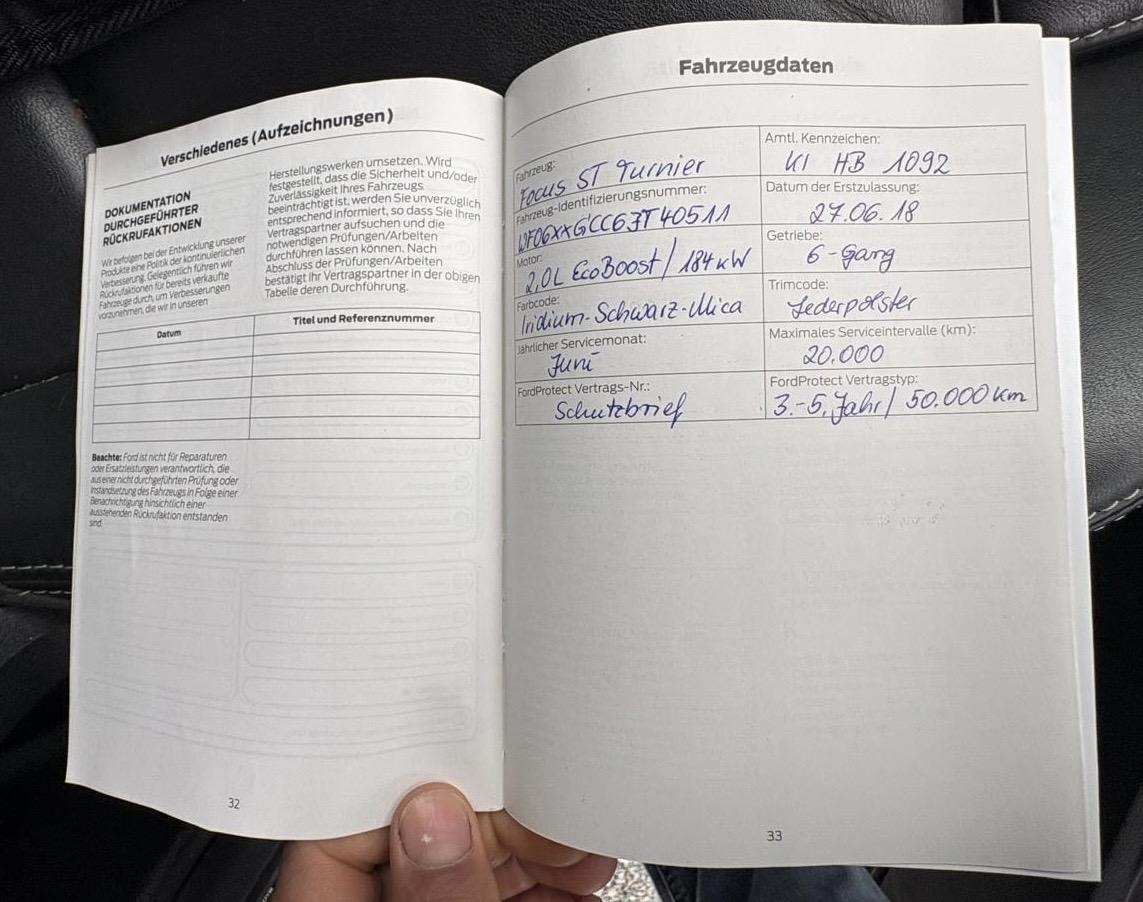 Verschiedenes (Aufzeichnungen)
DOKUMENTATION
DURCHGEFÜHRTER
RÜCKRUFAKTIONEN
Wir befolgen bei der Entwicklung unserer
Produkte eine Politik der kontinuierlichen
Verbesserung. Gelegentlich führen wir
Rückrufaktionen für bereits verkaufte
Fahrzeuge durch, um Verbesserungen
vorzunehmen, die wir in unseren
Herstellungswerken umsetzen. Wird
festgestellt, dass die Sicherheit und/oder
Zuverlässigkeit Ihres Fahrzeugs
beeinträchtigt ist, werden Sie unverzüglich
entsprechend informiert, so dass Sie Ihren
Vertragspartner aufsuchen und die
notwendigen Prüfungen/Arbeiten
durchführen lassen können. Nach
Abschluss der Prüfungen/Arbeiten
bestätigt Ihr Vertragspartner in der obigen
Tabelle deren Durchführung.
Datum
Titel und Referenznummer
Beachte: Ford ist nicht für Reparaturen
oder Ersatzleistungen verantwortlich, die
aus einer nicht durchgeführten Prüfung oder
Instandsetzung des Fahrzeugs in Folge einer
Benachrichtigung hinsichtlich einer
ausstehenden Rückrufaktion entstanden
sind.
32
Fahrzeugdaten
Fahrzeug:
Focus ST Turnier
Amtl. Kennzeichen:
KI HB 1092
Fahrzeug-Identifizierungsnummer:
WF06XXGCC6JT40511
Datum der Erstzulassung:
27.06.18
Motor:
2,0L EcoBoost / 184 kW
Getriebe:
6-Gang
Farbcode:
Iridium-Schwarz-Mica
Trimcode:
Lederpolster
Jährlicher Servicemonat:
Juni
Maximales Serviceintervalle (km):
20.000
FordProtect Vertrags-Nr.:
Schutzbrief
FordProtect Vertragstyp:
3.-5. Jahr / 50.000 km
33